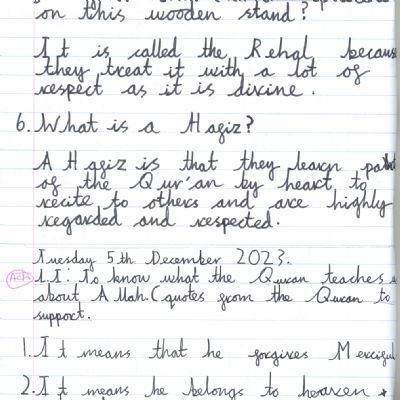 on this wooden stand?
It is called the Rehal because
they treat it with a lot of
respect as it is divine.
6. What is a Hafiz?
A Hafiz is that they learn
of the Qur'an by heart to
recite to others and are highly
regarded and respected.
Tuesday 5th December 2023.
L.I: To know what the Quran teaches
about Allah. (quotes from the Quran to
support.
1. It means that he forgives Merciful
2. It means he belongs to heaven